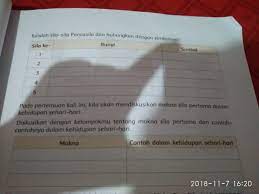 Tulislah sila-sila Pancasila dan hubungkan dengan simbolnya!
Sila ke- Bunyi Simbol
1
2
3
4
5
Pada pertemuan kali ini, kita akan mendiskusikan makna sila pertama dalam
kehidupan sehari-hari.
Diskusikan dengan kelompokmu tentang makna sila pertama dan contoh-
contohnya dalam kehidupan sehari-hari.
Makna Contoh dalam kehidupan sehari-hari
2018-11-7 16:20